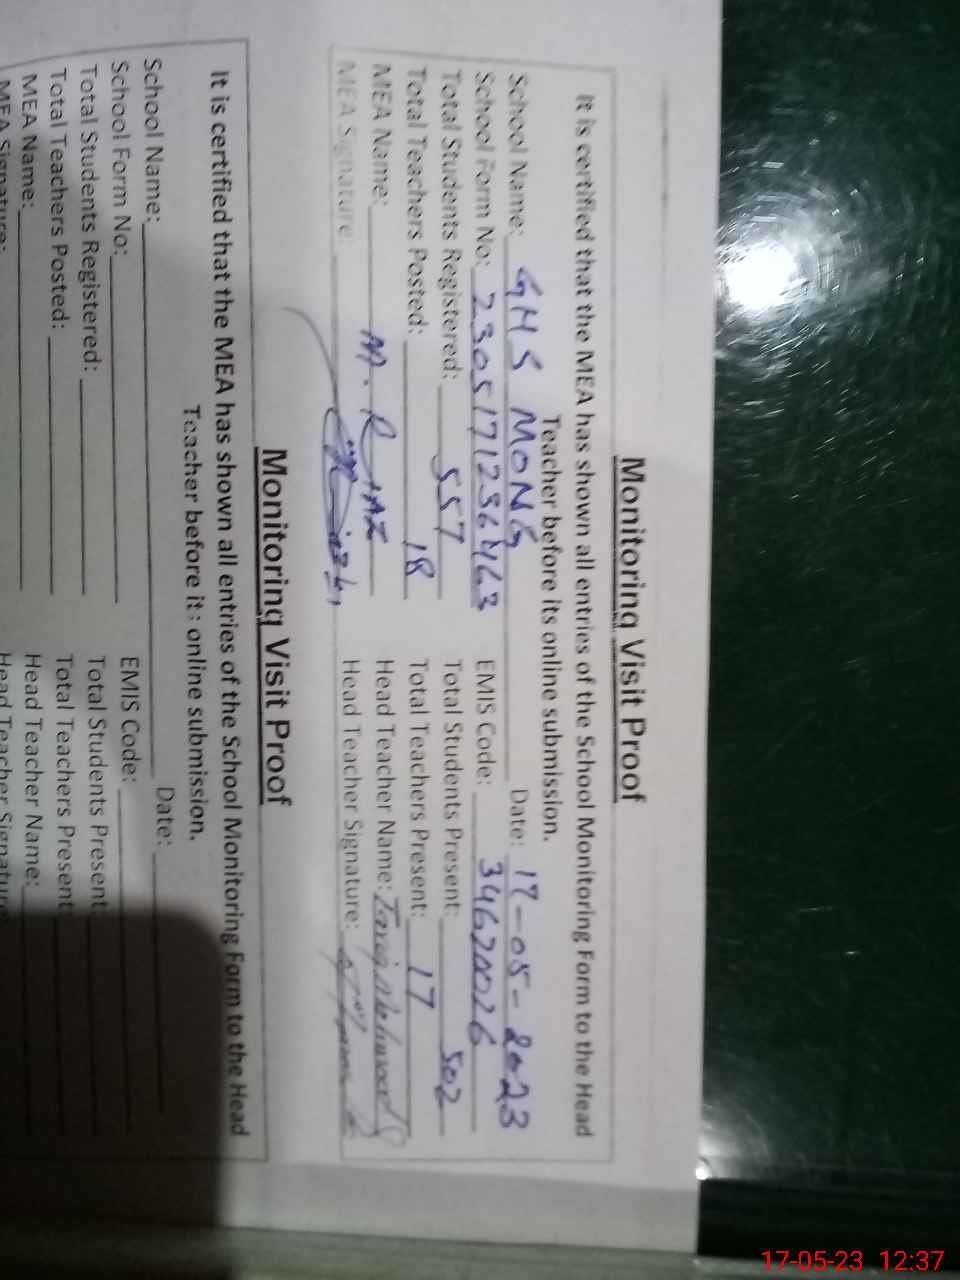 Monitoring Visit Proof
It is certified that the MEA has shown all entries of the School Monitoring Form to the Head
Teacher before its online submission.
School Name: GHS MONG Date: 17-05-2023
School Form No: 2305171236463 EMIS Code: 34620026
Total Students Registered: 557 Total Students Present: 502
Total Teachers Posted: 18 Total Teachers Present: 17
MEA Name: M. RIAZ Head Teacher Name:
MEA Signature: Head Teacher Signature:
Monitoring Visit Proof
It is certified that the MEA has shown all entries of the School Monitoring Form to the Head
Teacher before its online submission.
School Name: Date:
School Form No: EMIS Code:
Total Students Registered: Total Students Present:
Total Teachers Posted: Total Teachers Present:
MEA Name: Head Teacher Name:
MEA Signature: Head Teacher Signature:
17-05-23 12:37